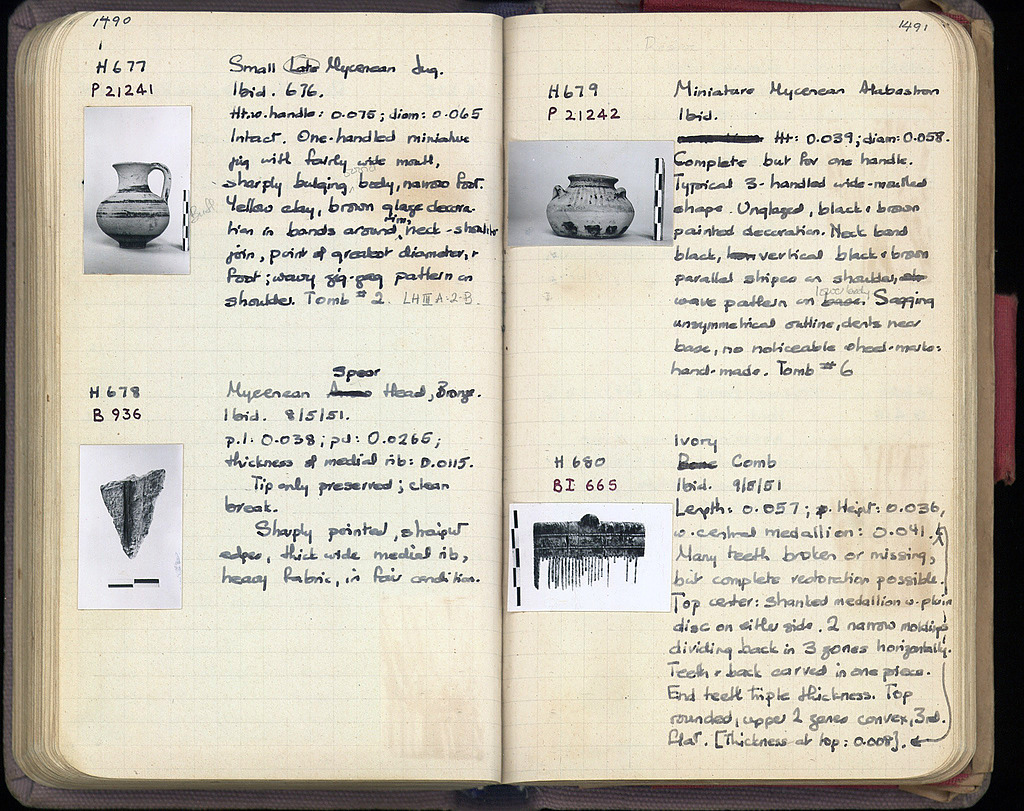 1490
H677
P 21241
Small Late Mycenean Jug.
Ibid. 676.
Ht.w.handle: 0.075; diam: 0.065
Intact. One-handled miniature
jug with fairly wide mouth,
sharply bulging body, narrow foot.
Yellow clay, brown glaze decora-
tion in bands around rim, neck-shoulder
join, point of greatest diameter, +
foot; wavy zig-zag pattern on
shoulder. Tomb # 2. LH III A:2-B.
H 678
B 936
Spear
Mycenean Head, Bronze.
Ibid. 8/5/51.
p.l: 0.038; p.d: 0.0265;
thickness of medial rib: 0.0115.
Tip only preserved; clean
break.
Sharply pointed, straight
edges, thick wide medial rib,
heavy fabric, in fair condition.
1491
H679
P 21242
Miniature Mycenean Alabastron
Ibid.
Ht: 0.039; diam: 0.058.
Complete but for one handle.
Typical 3-handled wide-mouthed
shape. Unglazed, black + brown
painted decoration. Neck band
black, vertical black + brown
parallel stripes on shoulder,
wave pattern on base. lower body Sagging
unsymmetrical outline, dents near
base, no noticeable wheel-marks:
hand-made. Tomb # 6
H 680
BI 665
Ivory
Bone Comb
Ibid. 9/5/51
Length: 0.057; p. Height: 0.036,
w. central medallion: 0.041.
Many teeth broken or missing,
but complete restoration possible.
Top center: Shanked medallion w. plain
disc on either side. 2 narrow moldings
dividing back in 3 zones horizontally.
Teeth + back carved in one piece.
End teeth triple thickness. Top
rounded, upper 2 zones convex, 3rd.
flat. [Thickness at top: 0.008].